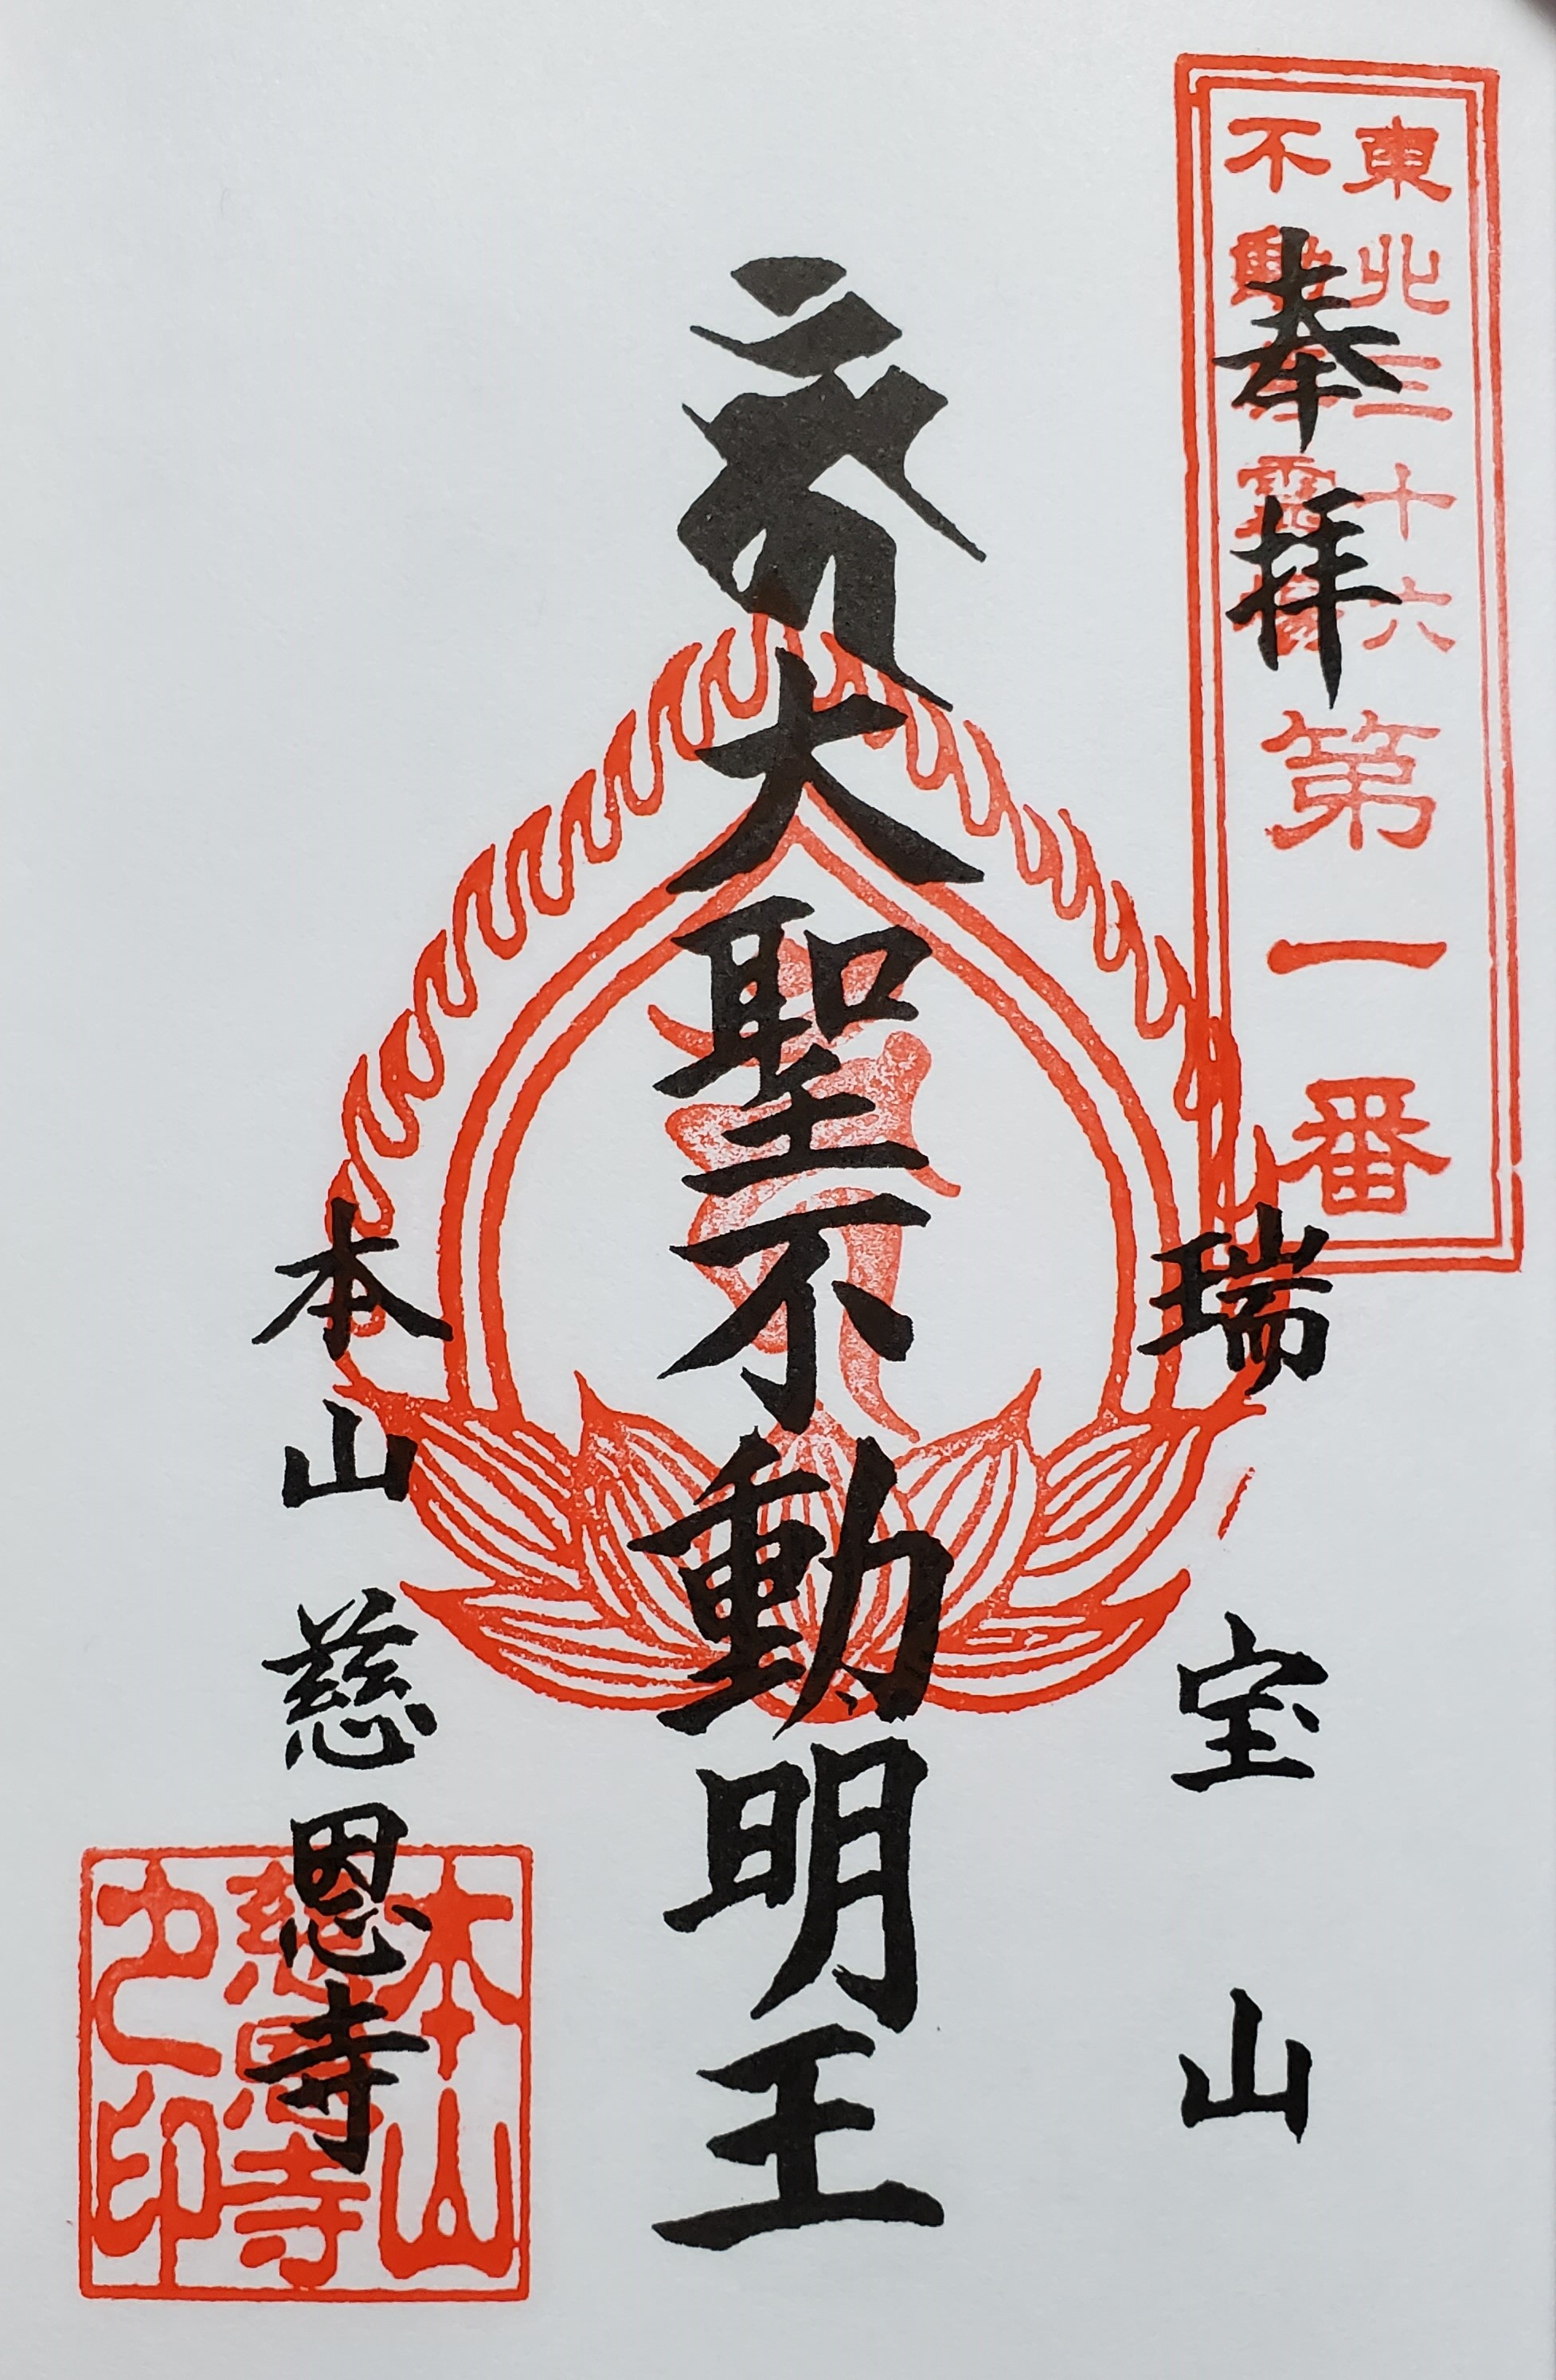 東北三十六
不動尊霊場
第一番
奉拝
瑞宝山
大聖不動明王
本山慈恩寺
本山
慈恩寺
之印